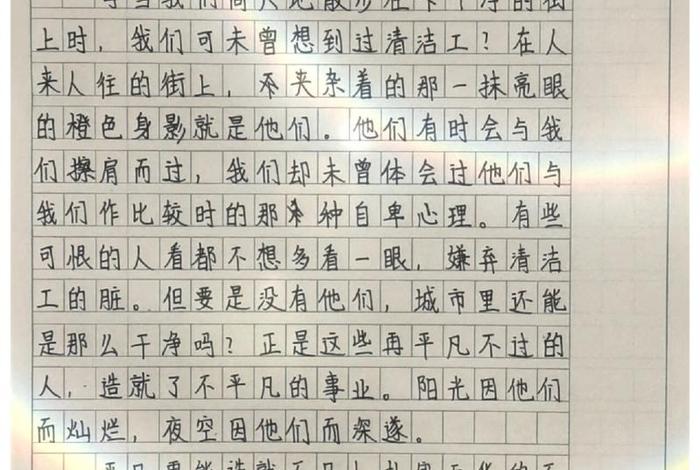 当我们高兴地散步在干净的街
上时，我们可未曾想到过清洁工？在人
来人往的街上，夹杂着的那一抹亮眼
的橙色身影就是他们。他们有时会与我
们擦肩而过，我们却未曾体会过他们与
我们作比较时的那种自卑心理。有些
可恨的人看都不想多看一眼，嫌弃清洁
工的脏。但要是没有他们，城市里还能
是那么干净吗？正是这些再平凡不过的
人，造就了不平凡的事业。阳光因他们
而灿烂，夜空因他们而深邃。